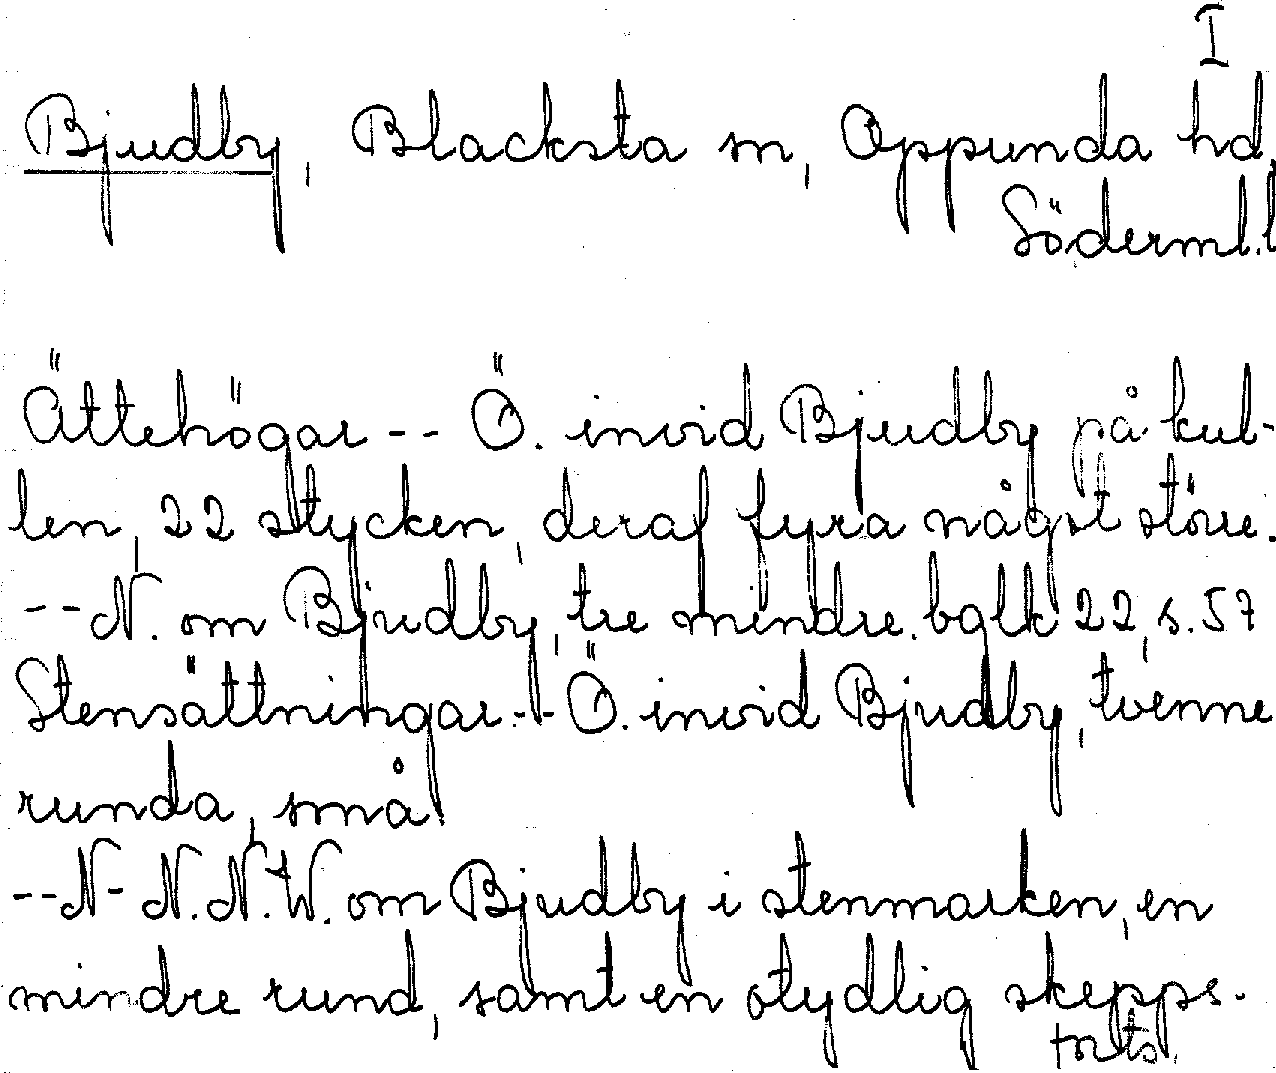 I
Bjudby, Blacksta sn, Oppunda hd,
Söderml.l
Ättehögar -- Ö. invid Bjudby på kul-
len, 22 stycken, deraf fyra något större.
-- N. om Bjudby, tre mindre. balk 22, s. 57
Stensättningar -- Ö. invid Bjudby, tvenne
runda, små.
-- N- N.N.W. om Bjudby i stenmarken, en
mindre rund, samt en otydlig skepps-
forts.